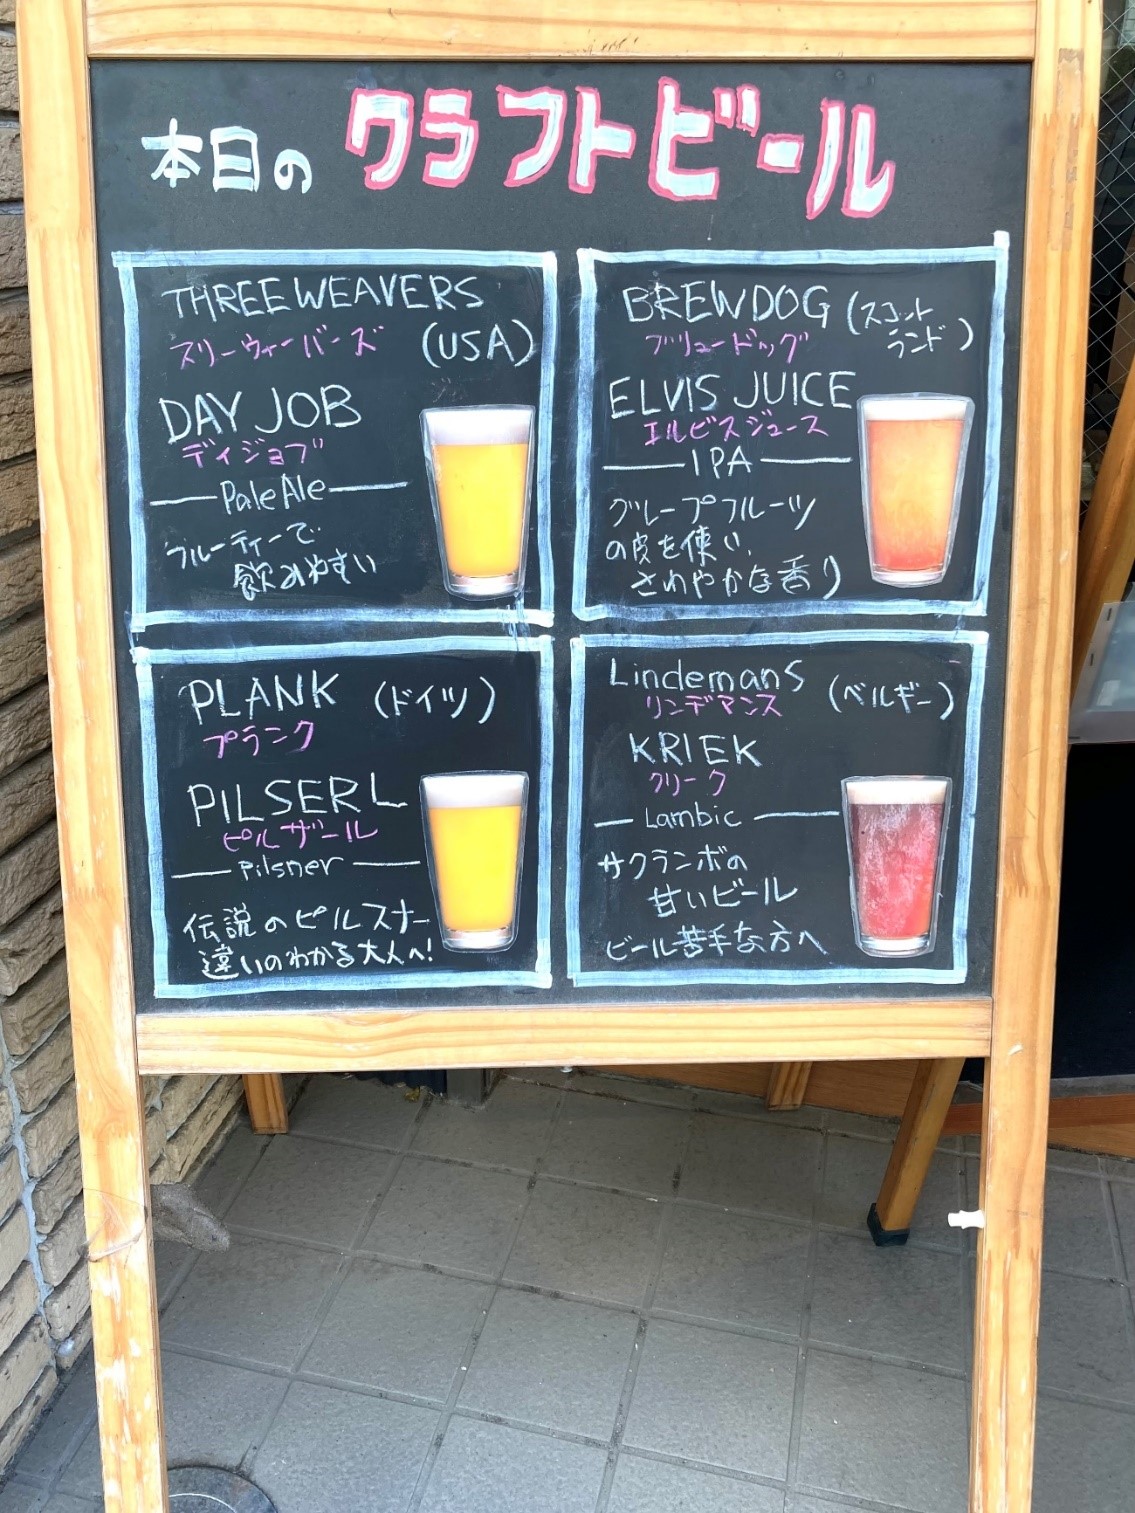 本日の クラフトビール
THREE WEAVERS
スリーウィーバーズ (USA)
DAY JOB
デイジョブ
Pale Ale
フルーティーで
飲みやすい
BREWDOG (スコットランド)
ブリュードッグ
ELVIS JUICE
エルビスジュース
IPA
グレープフルーツ
の皮を使い、
さわやかな香り
PLANK (ドイツ)
プランク
PILSERL
ピルザール
Pilsner
伝説のピルスナー
違いのわかる大人へ!
Lindemans
リンデマンス (ベルギー)
KRIEK
クリーク
Lambic
サクランボの
甘いビール
ビール苦手な方へ